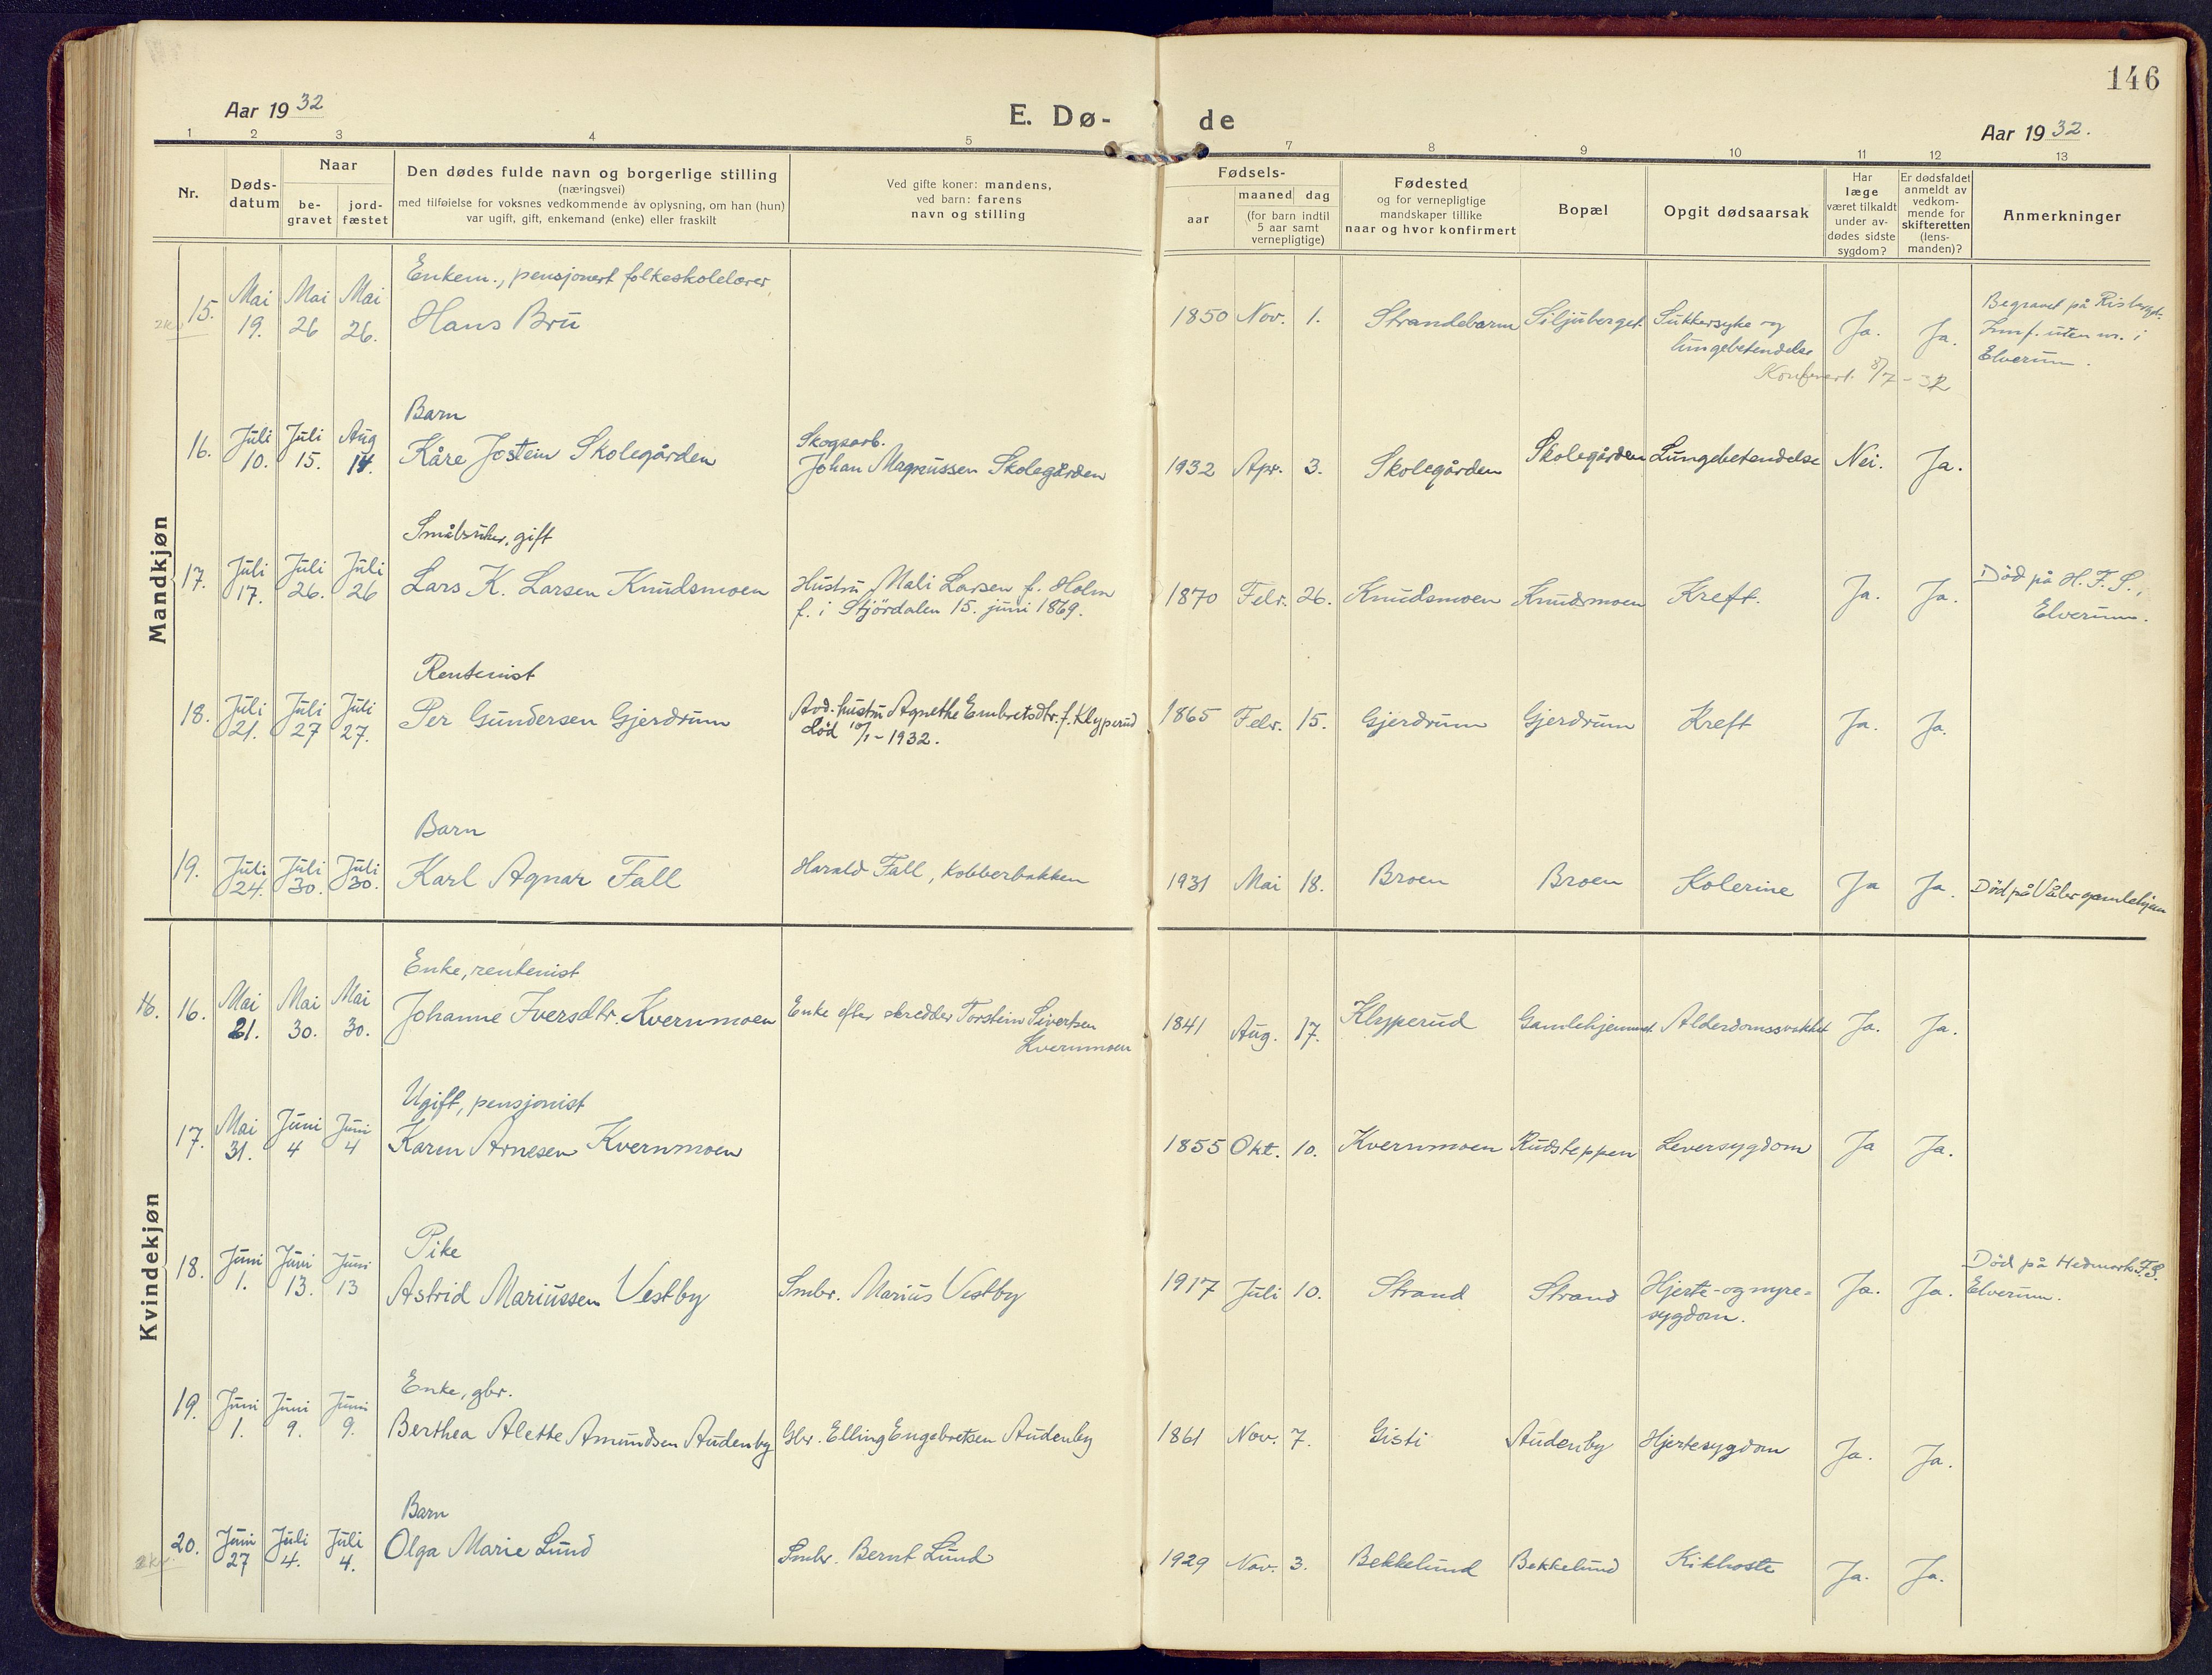 146
Aar 1932
E. Dø-
de
Aar 1932.
1 2 3 4 5 7 8 9 10 11 12 13
Nr.
Døds-
datum
Naar
be-
gravet
jord-
fæstet
Den dødes fulde navn og borgerlige stilling
(næringsvei)
med tilføielse for voksnes vedkommende av oplysning, om han (hun)
var ugift, gift, enkemand (enke) eller fraskilt
Ved gifte koner: mandens,
ved barn: farens
navn og stilling
Fødsels-
aar
maaned
dag
(for barn indtil
5 aar samt
vernepligtige)
Fødested
og for vernepligtige
mandskaper tillike
naar og hvor konfirmert
Bopæl
Opgit dødsaarsak
Har
læge
været tilkaldt
under av-
dødes sidste
sygdom?
Er dødsfaldet
anmeldt av
vedkom-
mende for
skifteretten
(lens-
manden)?
Anmerkninger
Mandkjøn
Enkem., pensjonert folkeskolelærer,
15. Mai 19. Mai 26 Mai 26. Hans Bru
1850 Nov. 1. Strandebarm Siljuberget. Sukkersyke og
lungebetendelse
Ja. Ja.
Begravet på Risbergst.
Jmf. uten nr. i
Elverum.
Konferert 8/7-32
Barn
16. Juli 10. Juli 15. Aug 14. Kåre Jostein Skolegården
Skogsarb.
Johan Magnussen Skolegården
1932 Apr. 3. Skolegården Skolegården Lungebetendelse Nei. Ja.
Småbruker, gift
17. Juli 17. Juli 26. Juli 26 Lars K. Larsen Knudsmoen
Hustru Mali Larsen f. Holm
f. i Stjördalen 15. juni 1869.
1870 Febr. 26. Knudsmoen Knudsmoen Kreft. Ja. Ja.
Död på H. F. S.,
Elverum.
Rentenist
18. Juli 21. Juli 27 Juli 27. Per Gundersen Gjerdrum
Avd. hustru Agnethe Embretsdtr. f. Klyperud
död 10/1-1932.
1865 Febr. 15. Gjerdrum Gjerdrum Kreft Ja. Ja.
Barn
19. Juli 24. Juli 30. Juli 30. Karl Agnar Fall
Harald Fall, Kobberbakken
1931 Mai 18. Broen Broen Kolerine Ja Ja.
Död på Våler gamlehjem
Kvindekjøn
Enke, rentenist
16. 16. Mai 21. Mai 30. Mai 30. Johanne Iversdtr. Kvernmoen
Enke efter skredder Torstein Sivertsen
Kvernmoen
1841 Aug. 17. Klyperud Gamlehjemmet. Alderdomssvakhet Ja. Ja.
Ugift, pensjonist
17. Mai 31. Juni 4 Juni 4 Karen Arnesen Kvernmoen
1855 Okt. 10. Kvernmoen Rudsteppen Leversygdom Ja Ja.
Pike
18. Juni 1. Juni 13. Juni 13 Astrid Mariussen Vestby
Smbr. Marius Vestby
1917 Juli 10. Strand Strand Hjerte- og nyre-
sygdom.
Ja. Ja.
Död på Hedmark F.S.
Elverum.
Enke, gbr.
19. Juni 1. Juni 9. Juni 9. Berthea Alette Amundsen Audenby
Gbr. Elling Engebretsen Audenby
1861 Nov. 7. Gisti Audenby Hjertesygdom Ja. Ja.
Barn
20. Juni 27 Juli 4. Juli 4. Olga Marie Lund
Smbr. Bernt Lund
1929 Nov. 3. Bekkelund Bekkelund Kikhoste Ja. Ja.